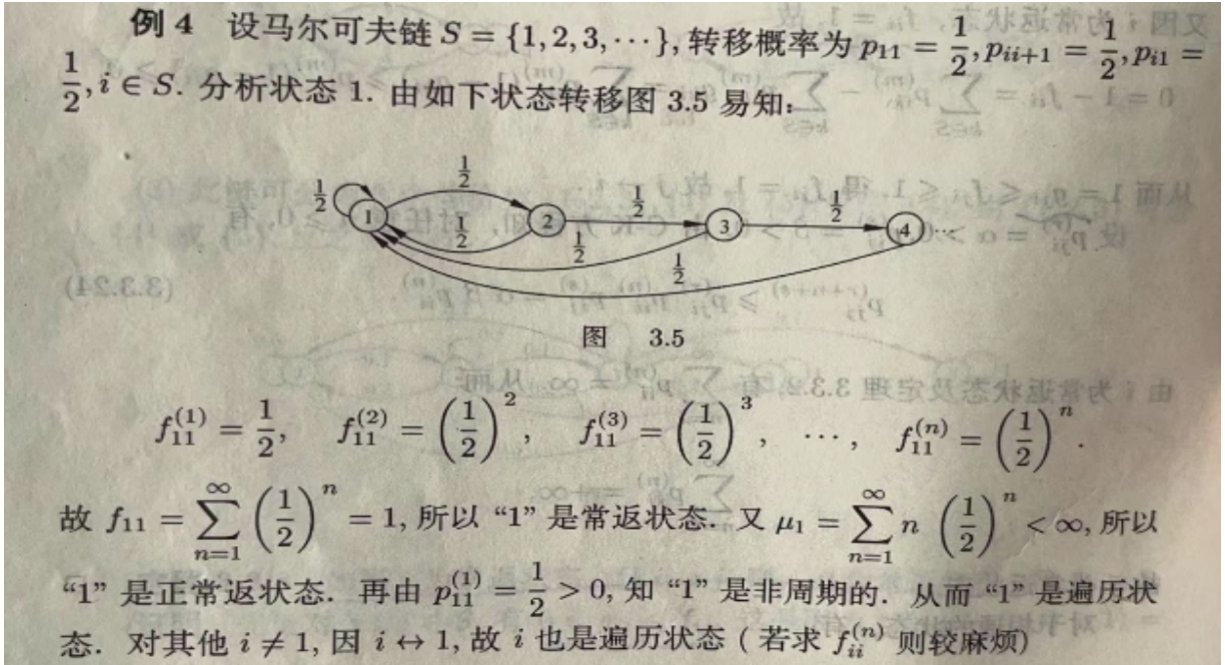 例 4 设马尔可夫链 S = {1, 2, 3, ⋯}, 转移概率为 p₁₁ = 1/2, pᵢᵢ₊₁ = 1/2, pᵢ₁ =
1/2, i ∈ S. 分析状态 1. 由如下状态转移图 3.5 易知:
1/2 1 1/2 2 1/2 3 1/2 4 ⋯
1/2 1/2 1/2
图 3.5
f₁₁⁽¹⁾ = 1/2, f₁₁⁽²⁾ = (1/2)², f₁₁⁽³⁾ = (1/2)³, ⋯, f₁₁⁽ⁿ⁾ = (1/2)ⁿ.
故 f₁₁ = ∑_{n=1}^{∞} (1/2)ⁿ = 1, 所以 “1” 是常返状态. 又 μ₁ = ∑_{n=1}^{∞} n (1/2)ⁿ < ∞, 所以
“1” 是正常返状态. 再由 p₁₁⁽¹⁾ = 1/2 > 0, 知 “1” 是非周期的. 从而 “1” 是遍历状
态. 对其他 i ≠ 1, 因 i ↔ 1, 故 i 也是遍历状态 ( 若求 fᵢᵢ⁽ⁿ⁾ 则较麻烦)